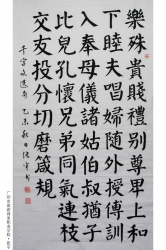 樂殊貴賤禮別尊卑上和
下睦夫唱婦隨外授傅訓
入奉母儀諸姑伯叔猶子
比兒孔懷兄弟同氣連枝
交友投分切磨箴規
千字文選句 乙未秋日